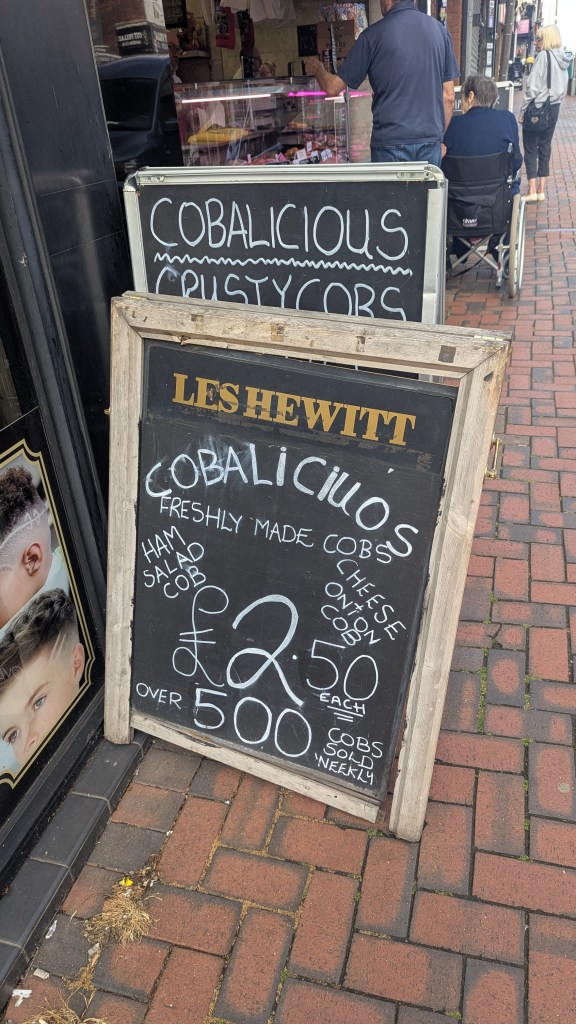 COBALICIOUS
CRUSTY COBS
LES HEWITT
COBALICIUO'S
FRESHLY MADE COBS
HAM
SALAD
COB
CHEESE
ONION
COB
£2.50
EACH
OVER 500 COBS
SOLD
WEEKLY